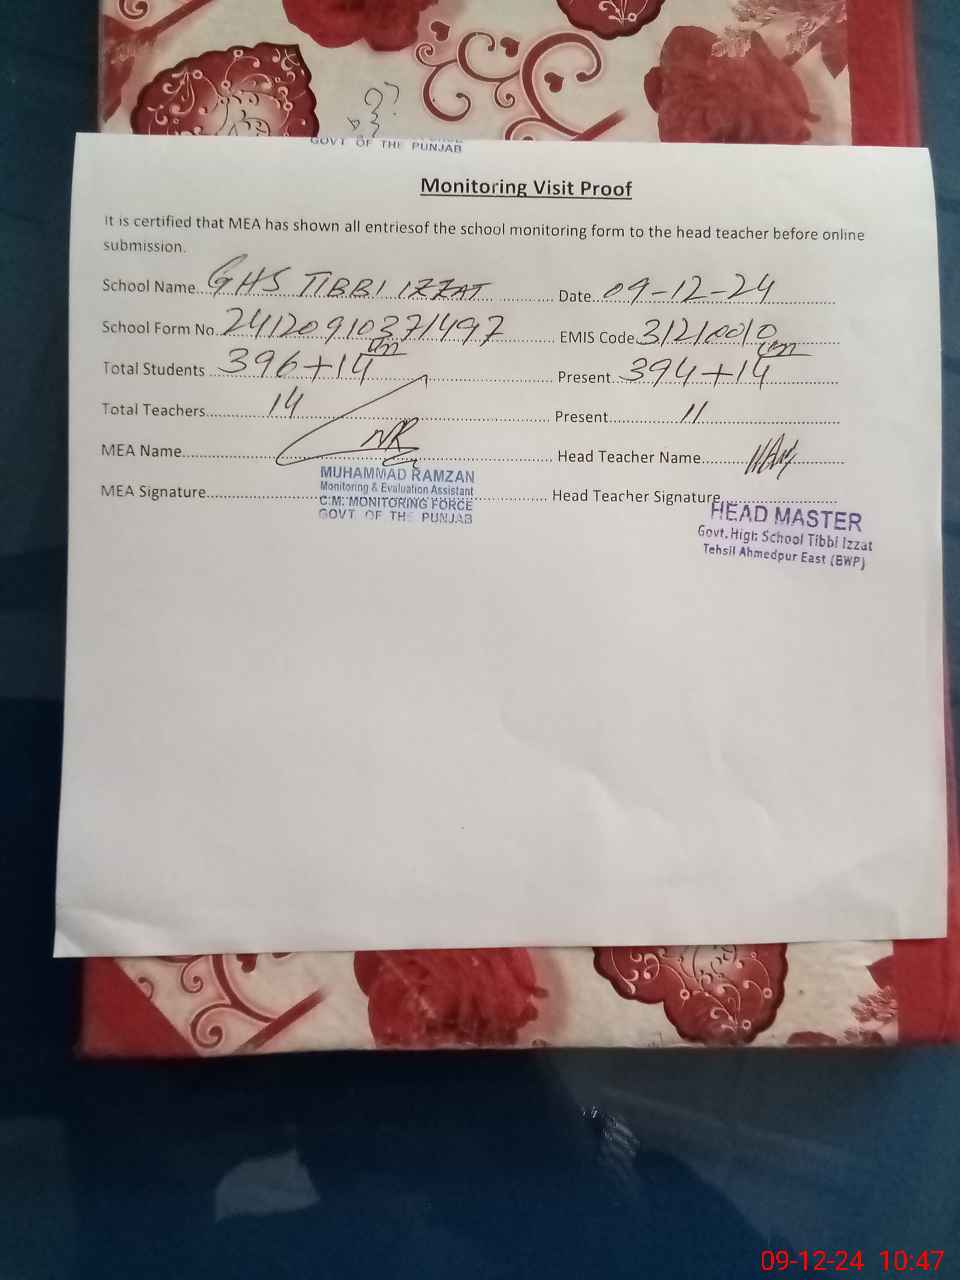 GOVT OF THE PUNJAB
Monitoring Visit Proof
It is certified that MEA has shown all entriesof the school monitoring form to the head teacher before online
submission.
School Name GHS TIBBI IZZAT Date 09-12-24
School Form No. 24120910371497 EMIS Code 31210010
Total Students 396+14 Present 394+14
Total Teachers 14 Present 11
MEA Name Head Teacher Name
MUHAMMAD RAMZAN
Monitoring & Evaluation Assistant
MEA Signature Head Teacher Signature
C.M. MONITORING FORCE
GOVT. OF THE PUNJAB
HEAD MASTER
Govt. High School Tibbi Izzat
Tehsil Ahmedpur East (BWP)
09-12-24 10:47